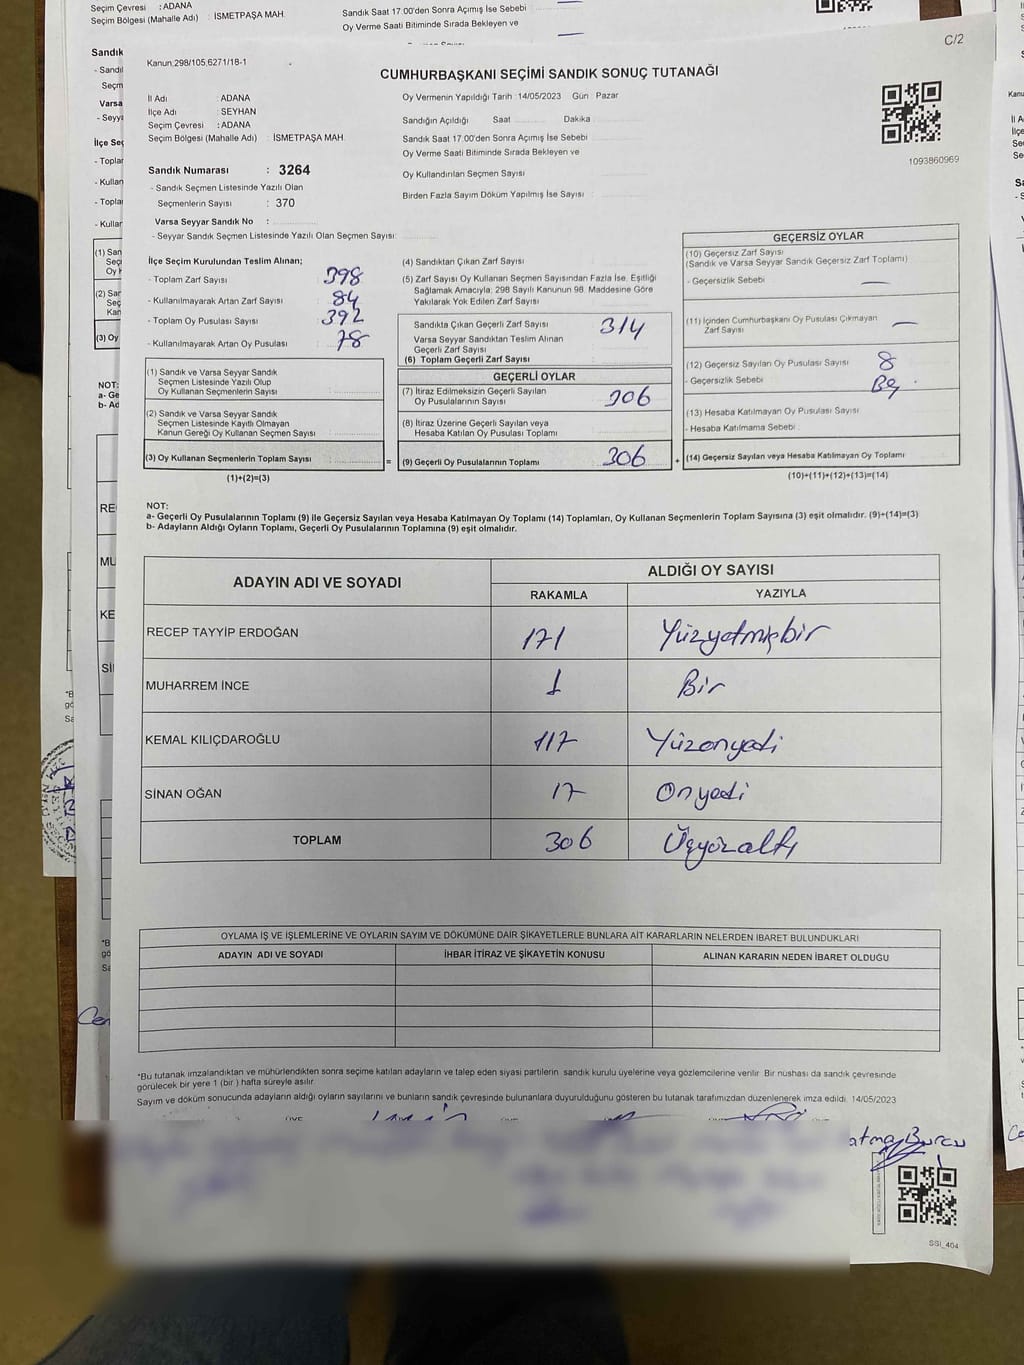 Seçim Çevresi : ADANA
Seçim Bölgesi (Mahalle Adı) : İSMETPAŞA MAH.
Sandık Saat 17:00'den Sonra Açımış İse Sebebi
Oy Verme Saati Bitiminde Sırada Bekleyen ve
C/2
Kanun:298/105,6271/18-1
CUMHURBAŞKANI SEÇİMİ SANDIK SONUÇ TUTANAĞI
İl Adı : ADANA
İlçe Adı : SEYHAN
Seçim Çevresi : ADANA
Seçim Bölgesi (Mahalle Adı) : İSMETPAŞA MAH.
Oy Vermenin Yapıldığı Tarih :14/05/2023 Gün : Pazar
Sandığın Açıldığı Saat Dakika
Sandık Saat 17:00'den Sonra Açımış İse Sebebi
Oy Verme Saati Bitiminde Sırada Bekleyen ve
Oy Kullandırılan Seçmen Sayısı
Birden Fazla Sayım Döküm Yapılmış İse Sayısı :
1093860969
Sandık Numarası : 3264
- Sandık Seçmen Listesinde Yazılı Olan
Seçmenlerin Sayısı : 370
Varsa Seyyar Sandık No :
- Seyyar Sandık Seçmen Listesinde Yazılı Olan Seçmen Sayısı:
İlçe Seçim Kurulundan Teslim Alınan;
- Toplam Zarf Sayısı : 398
- Kullanılmayarak Artan Zarf Sayısı : 84
- Toplam Oy Pusulası Sayısı : 392
- Kullanılmayarak Artan Oy Pusulası : 78
(1) Sandık ve Varsa Seyyar Sandık
Seçmen Listesinde Yazılı Olup
Oy Kullanan Seçmenlerin Sayısı :
(2) Sandık ve Varsa Seyyar Sandık
Seçmen Listesinde Kayıtlı Olmayan
Kanun Gereği Oy Kullanan Seçmen Sayısı :
(3) Oy Kullanan Seçmenlerin Toplam Sayısı :
(1)+(2)=(3)
=
(4) Sandıktan Çıkan Zarf Sayısı :
(5) Zarf Sayısı Oy Kullanan Seçmen Sayısından Fazla İse, Eşitliği
Sağlamak Amacıyla; 298 Sayılı Kanunun 98. Maddesine Göre
Yakılarak Yok Edilen Zarf Sayısı :
Sandıkta Çıkan Geçerli Zarf Sayısı : 314
Varsa Seyyar Sandıktan Teslim Alınan
Geçerli Zarf Sayısı :
(6) Toplam Geçerli Zarf Sayısı :
GEÇERLİ OYLAR
(7) İtiraz Edilmeksizin Geçerli Sayılan
Oy Pusulalarının Sayısı : 306
(8) İtiraz Üzerine Geçerli Sayılan veya
Hesaba Katılan Oy Pusulası Toplamı :
(9) Geçerli Oy Pusulalarının Toplamı : 306
+
GEÇERSİZ OYLAR
(10) Geçersiz Zarf Sayısı
(Sandık ve Varsa Seyyar Sandık Geçersiz Zarf Toplamı)
- Geçersizlik Sebebi : —
(11) İçinden Cumhurbaşkanı Oy Pusulası Çıkmayan
Zarf Sayısı : —
(12) Geçersiz Sayılan Oy Pusulası Sayısı : 8
- Geçersizlik Sebebi :
(13) Hesaba Katılmayan Oy Pusulası Sayısı :
- Hesaba Katılmama Sebebi :
(14) Geçersiz Sayılan veya Hesaba Katılmayan Oy Toplamı :
(10)+(11)+(12)+(13)=(14)
NOT:
a- Geçerli Oy Pusulalarının Toplamı (9) ile Geçersiz Sayılan veya Hesaba Katılmayan Oy Toplamı (14) Toplamları, Oy Kullanan Seçmenlerin Toplam Sayısına (3) eşit olmalıdır. (9)+(14)=(3)
b- Adayların Aldığı Oyların Toplamı, Geçerli Oy Pusulalarının Toplamına (9) eşit olmalıdır.
ADAYIN ADI VE SOYADI ALDIĞI OY SAYISI
RAKAMLA YAZIYLA
RECEP TAYYİP ERDOĞAN 171 Yüzyetmişbir
MUHARREM İNCE 1 Bir
KEMAL KILIÇDAROĞLU 117 Yüzonyedi
SİNAN OĞAN 17 Onyedi
TOPLAM 306 Üçyüzaltı
OYLAMA İŞ VE İŞLEMLERİNE VE OYLARIN SAYIM VE DÖKÜMÜNE DAİR ŞİKAYETLERLE BUNLARA AİT KARARLARIN NELERDEN İBARET BULUNDUKLARI
ADAYIN ADI VE SOYADI İHBAR İTİRAZ VE ŞİKAYETİN KONUSU ALINAN KARARIN NEDEN İBARET OLDUĞU
*Bu tutanak imzalandıktan ve mühürlendikten sonra seçime katılan adayların ve talep eden siyasi partilerin sandık kurulu üyelerine veya gözlemcilerine verilir. Bir nüshası da sandık çevresinde
görülecek bir yere 1 (bir ) hafta süreyle asılır.
Sayım ve döküm sonucunda adayların aldığı oyların sayılarını ve bunların sandık çevresinde bulunanlara duyurulduğunu gösteren bu tutanak tarafımızdan düzenlenerek imza edildi. 14/05/2023
atma Burcu
SSI_404